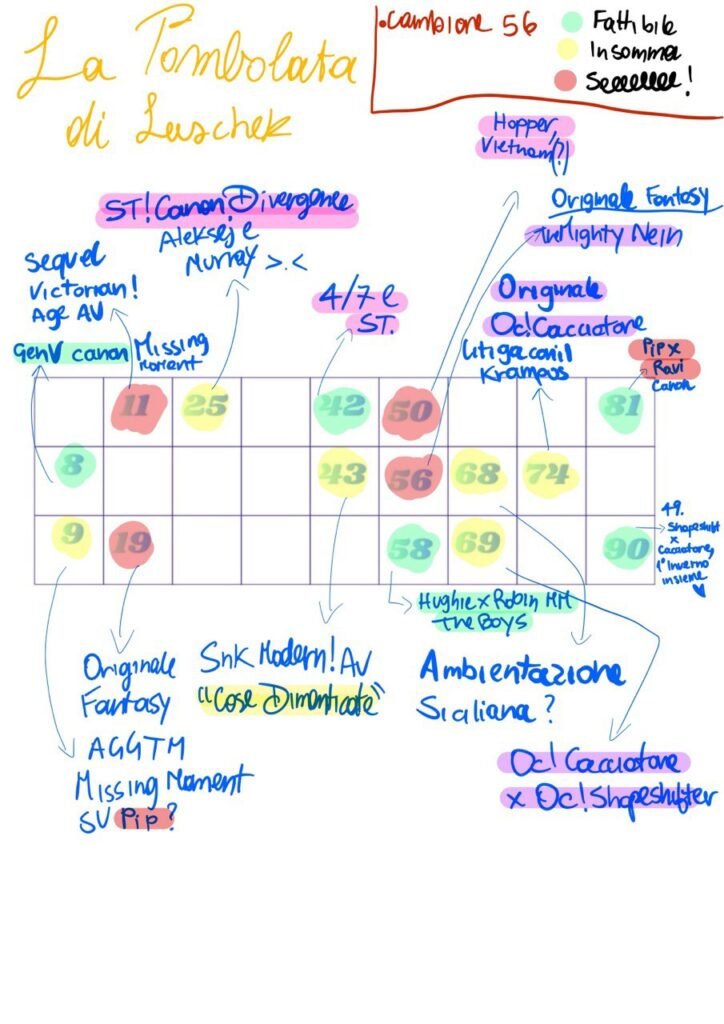 La Tombolata
di Luschek
.cambione 56
Fattibile
Insomma
Seeeeeee!
Hopper,
Vietnam(?)
Originale Fantasy
The Mighty Nein
ST!Canon!Divergence
Aleksej e
Murray >.<
Sequel
Victorian!
Age AU
4/7 e
ST.
Originale
Oc!Cacciatore
litiga con il
Krampus
GenV canon
Missing
Moment
Pip x
Ravi
Canon
11 25 42 50 81
8 43 56 68 74
9 19 58 69 90
49.
Shapeshift
x
Cacciatore,
1° inverno
insieme
Hughie x Robin MM
The Boys
Originale
Fantasy
Snk Modern!AU
"Cose Dimenticate"
Ambientazione
Siciliana?
AGGTM
Missing Moment
SU Pip?
Oc!Cacciatore
x Oc!Shapeshifter